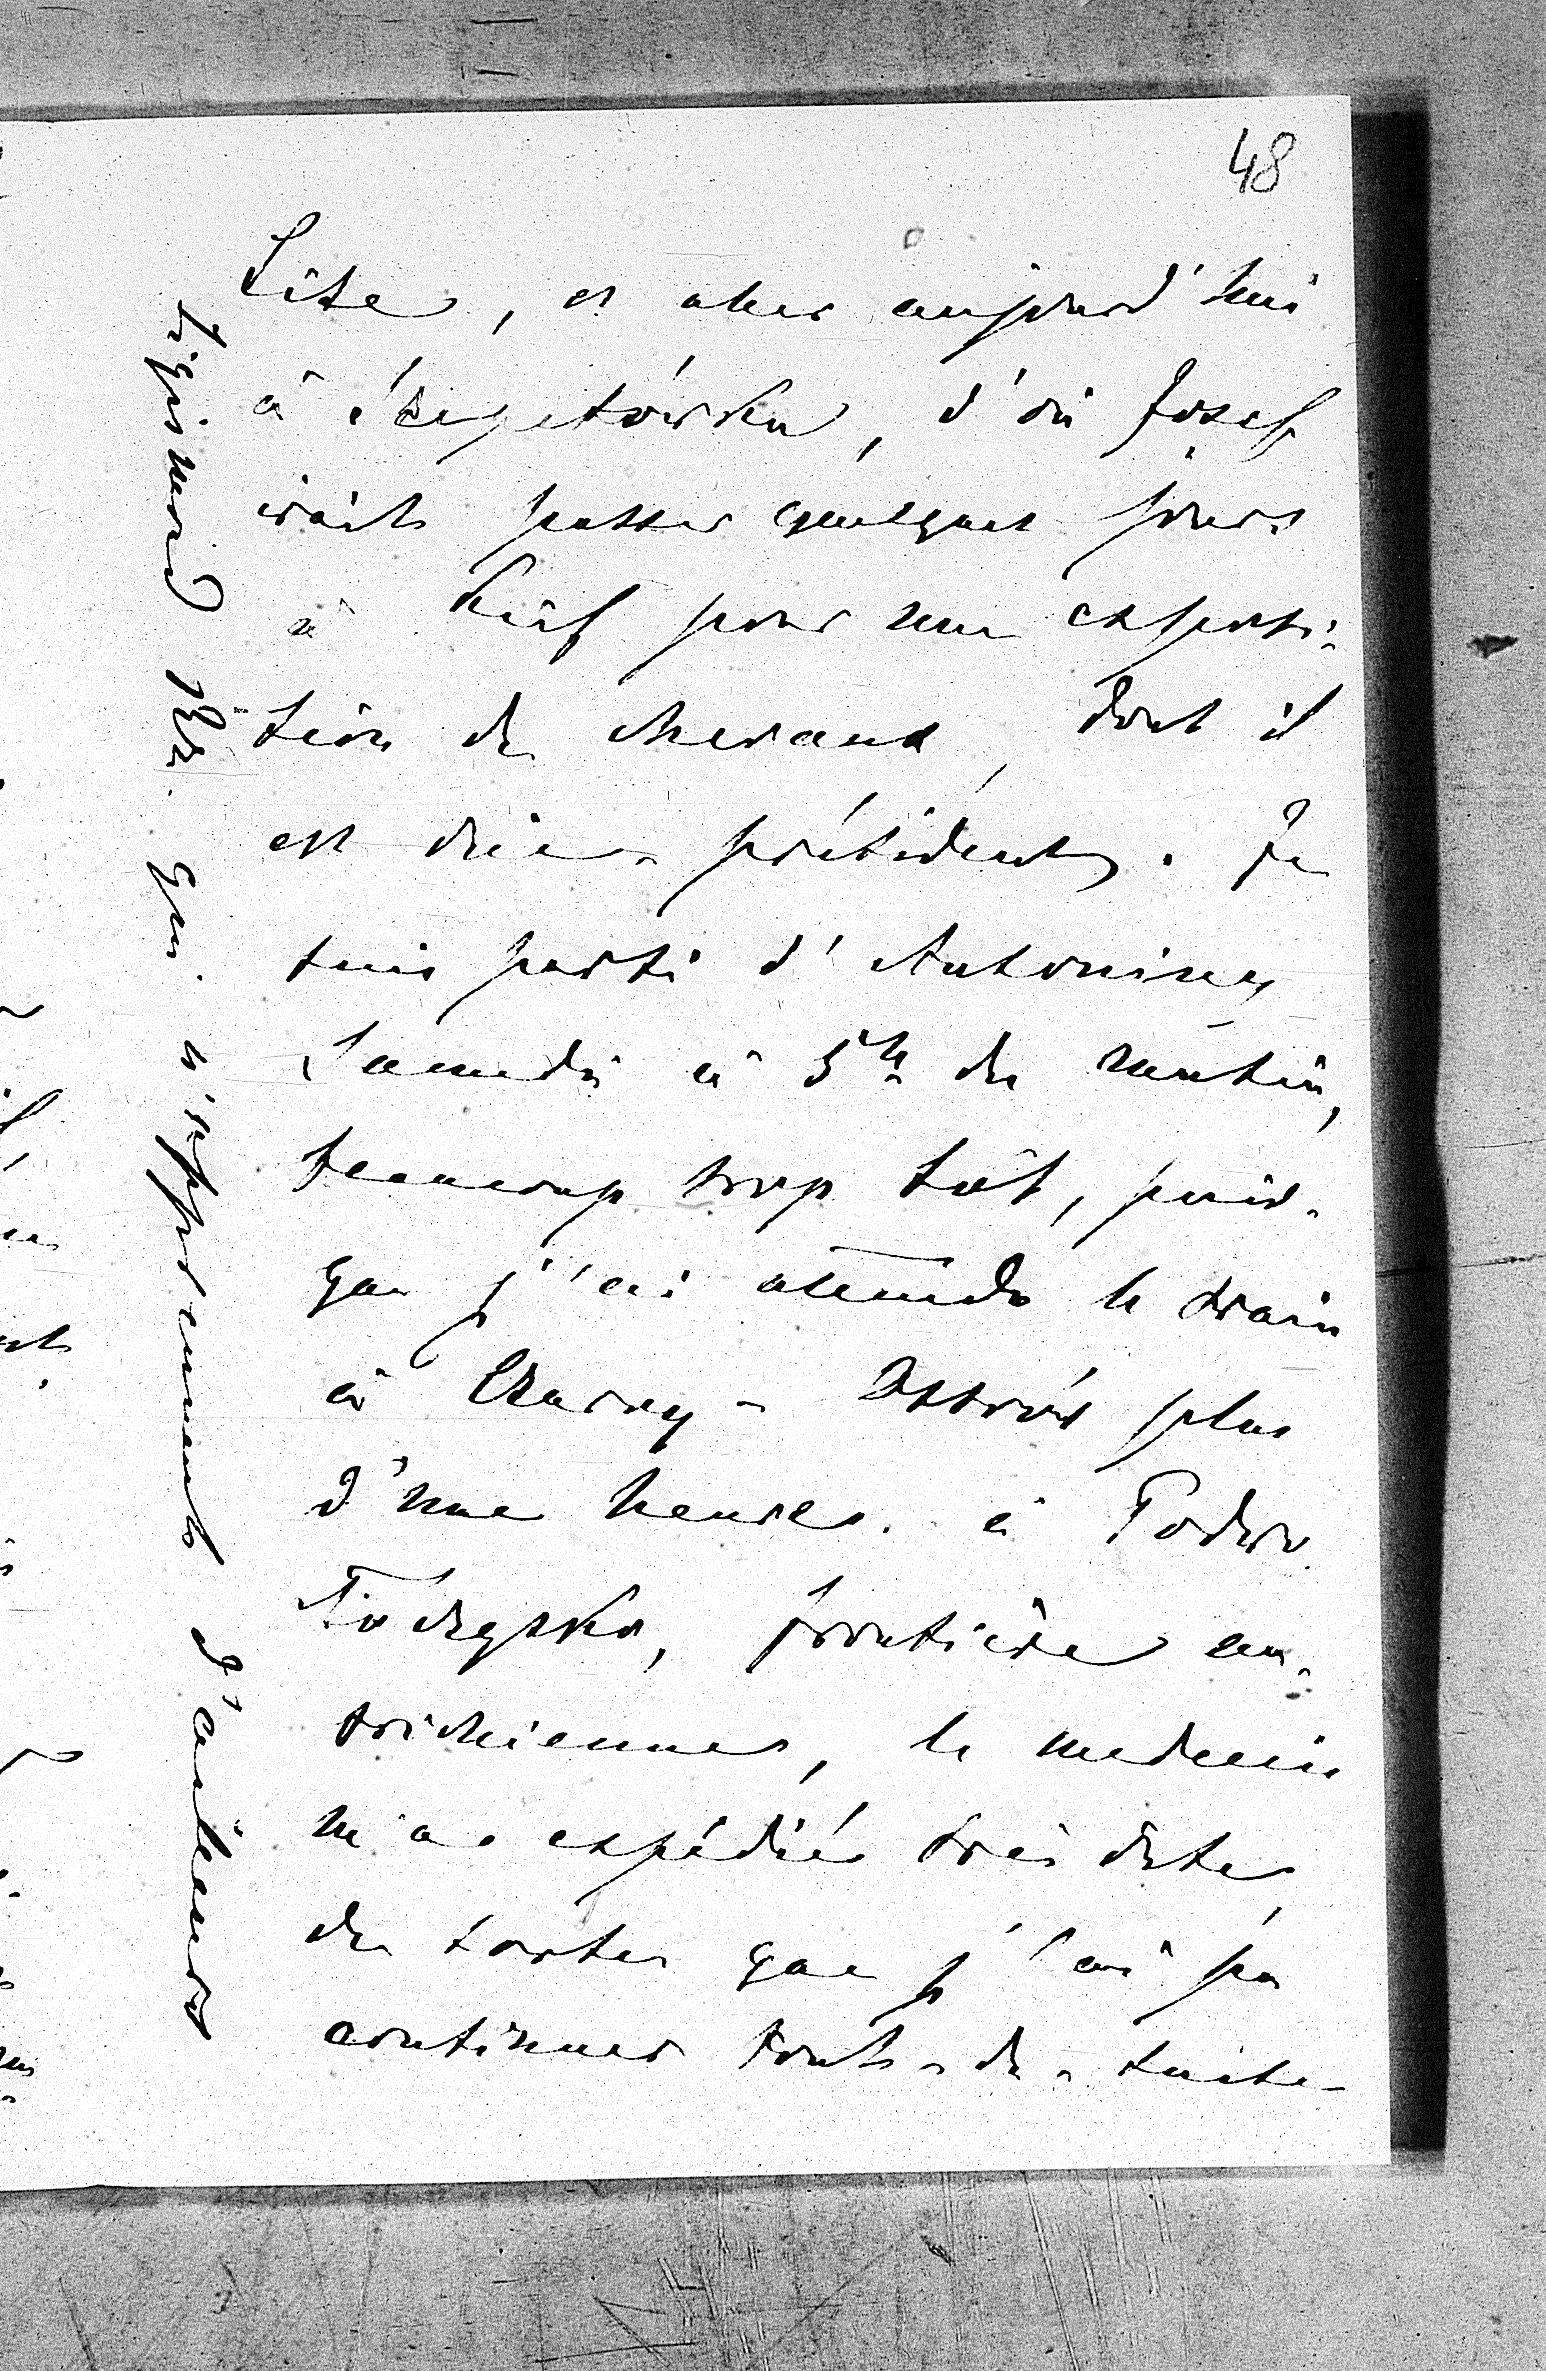 48
Lise, et aller aujourd'hui
à Szepetówka, d'où Josef
irait passer quelques jours
à Kief pour une exposi-
tion de chevaux, dont il
est vice-président. Je
suis parti d'Antoniny
Samedi à 5h du matin,
beaucoup trop tôt, puis-
que j'ai attendu le train
à Czarny-Ostrów plus
d'une heure. à Podwo-
łoczyska, frontière au-
trichienne, le medecin
m'a expédié très vite,
de sorte que j'ai pu
continuer tout-de-suite
qui n'a d'ailleurs